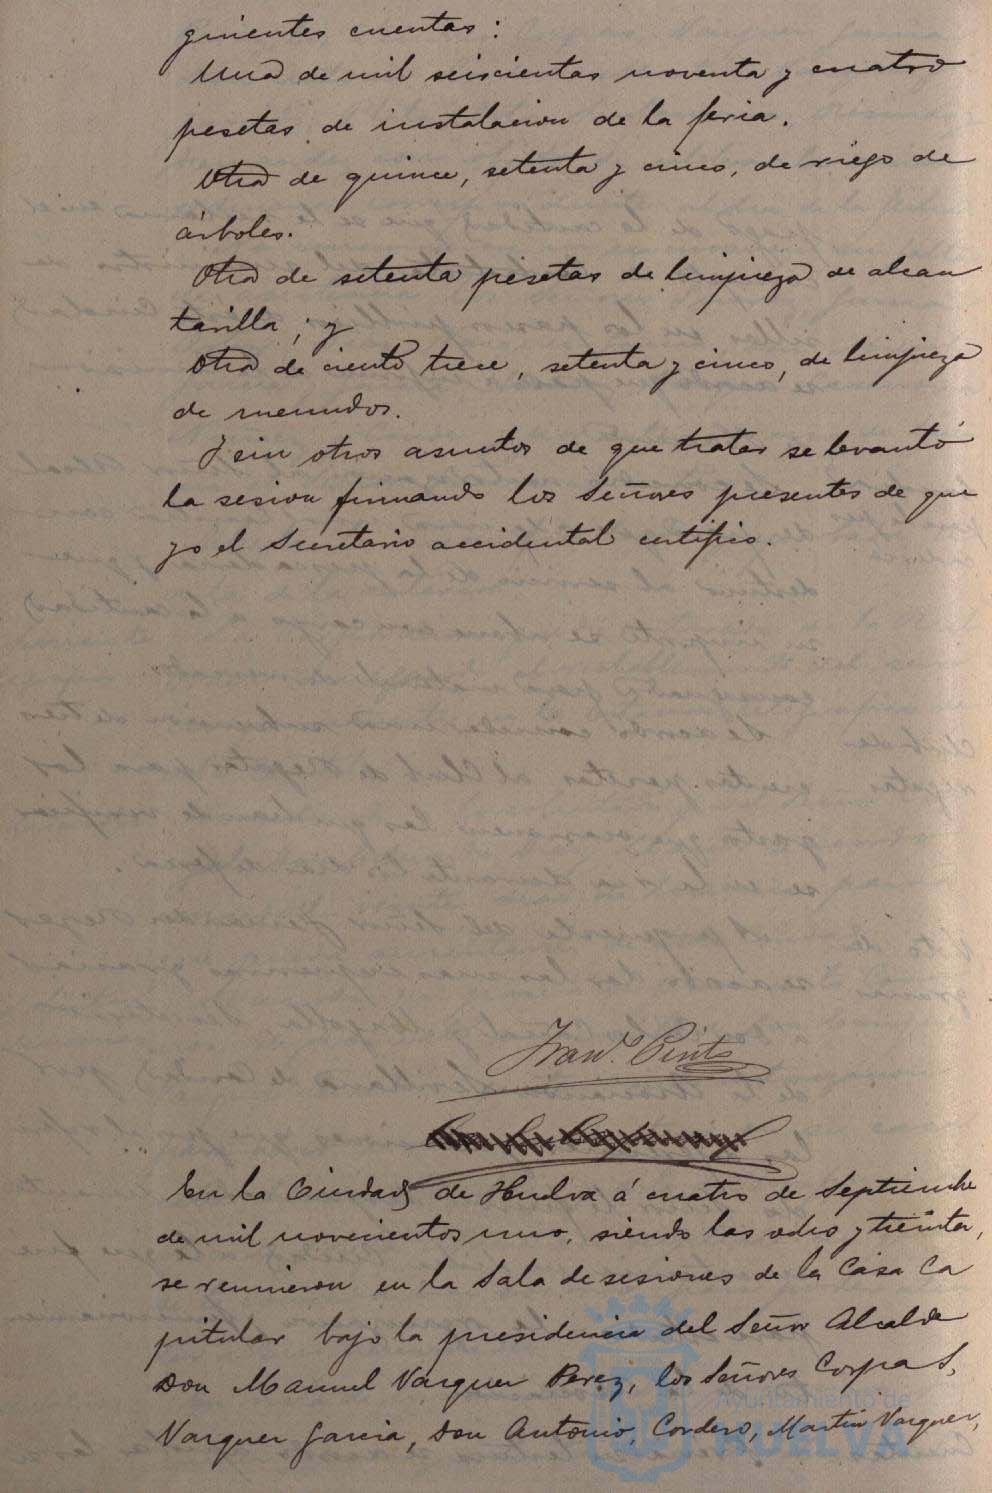 guientes cuentas:
Una de mil seiscientas noventa y cuatro
pesetas de instalacion de la feria.
Otra de quince, setenta y cinco, de riego de
árboles.
Otra de setenta pesetas de limpieza de alcan
tarilla; y
Otra de ciento trece, setenta y cinco, de limpieza
de menudos.
Y sin otros asuntos de que tratar se levantó
la sesion firmando los Señores presentes de que
yo el Secretario accidental certifico.
Franco. Pinto
En la Ciudad de Huelva á cuatro de Septiembre
de mil novecientos uno, siendo las ocho y treinta,
se reunieron en la Sala de sesiones de la Casa Ca
pitular bajo la presidencia del Señor Alcalde
Don Manuel Vazquez Perez, los Señores Corpas,
Vazquez Garcia, Don Antonio, Cordero, Martin Vazquez,
Ayuntamiento de
HUELVA